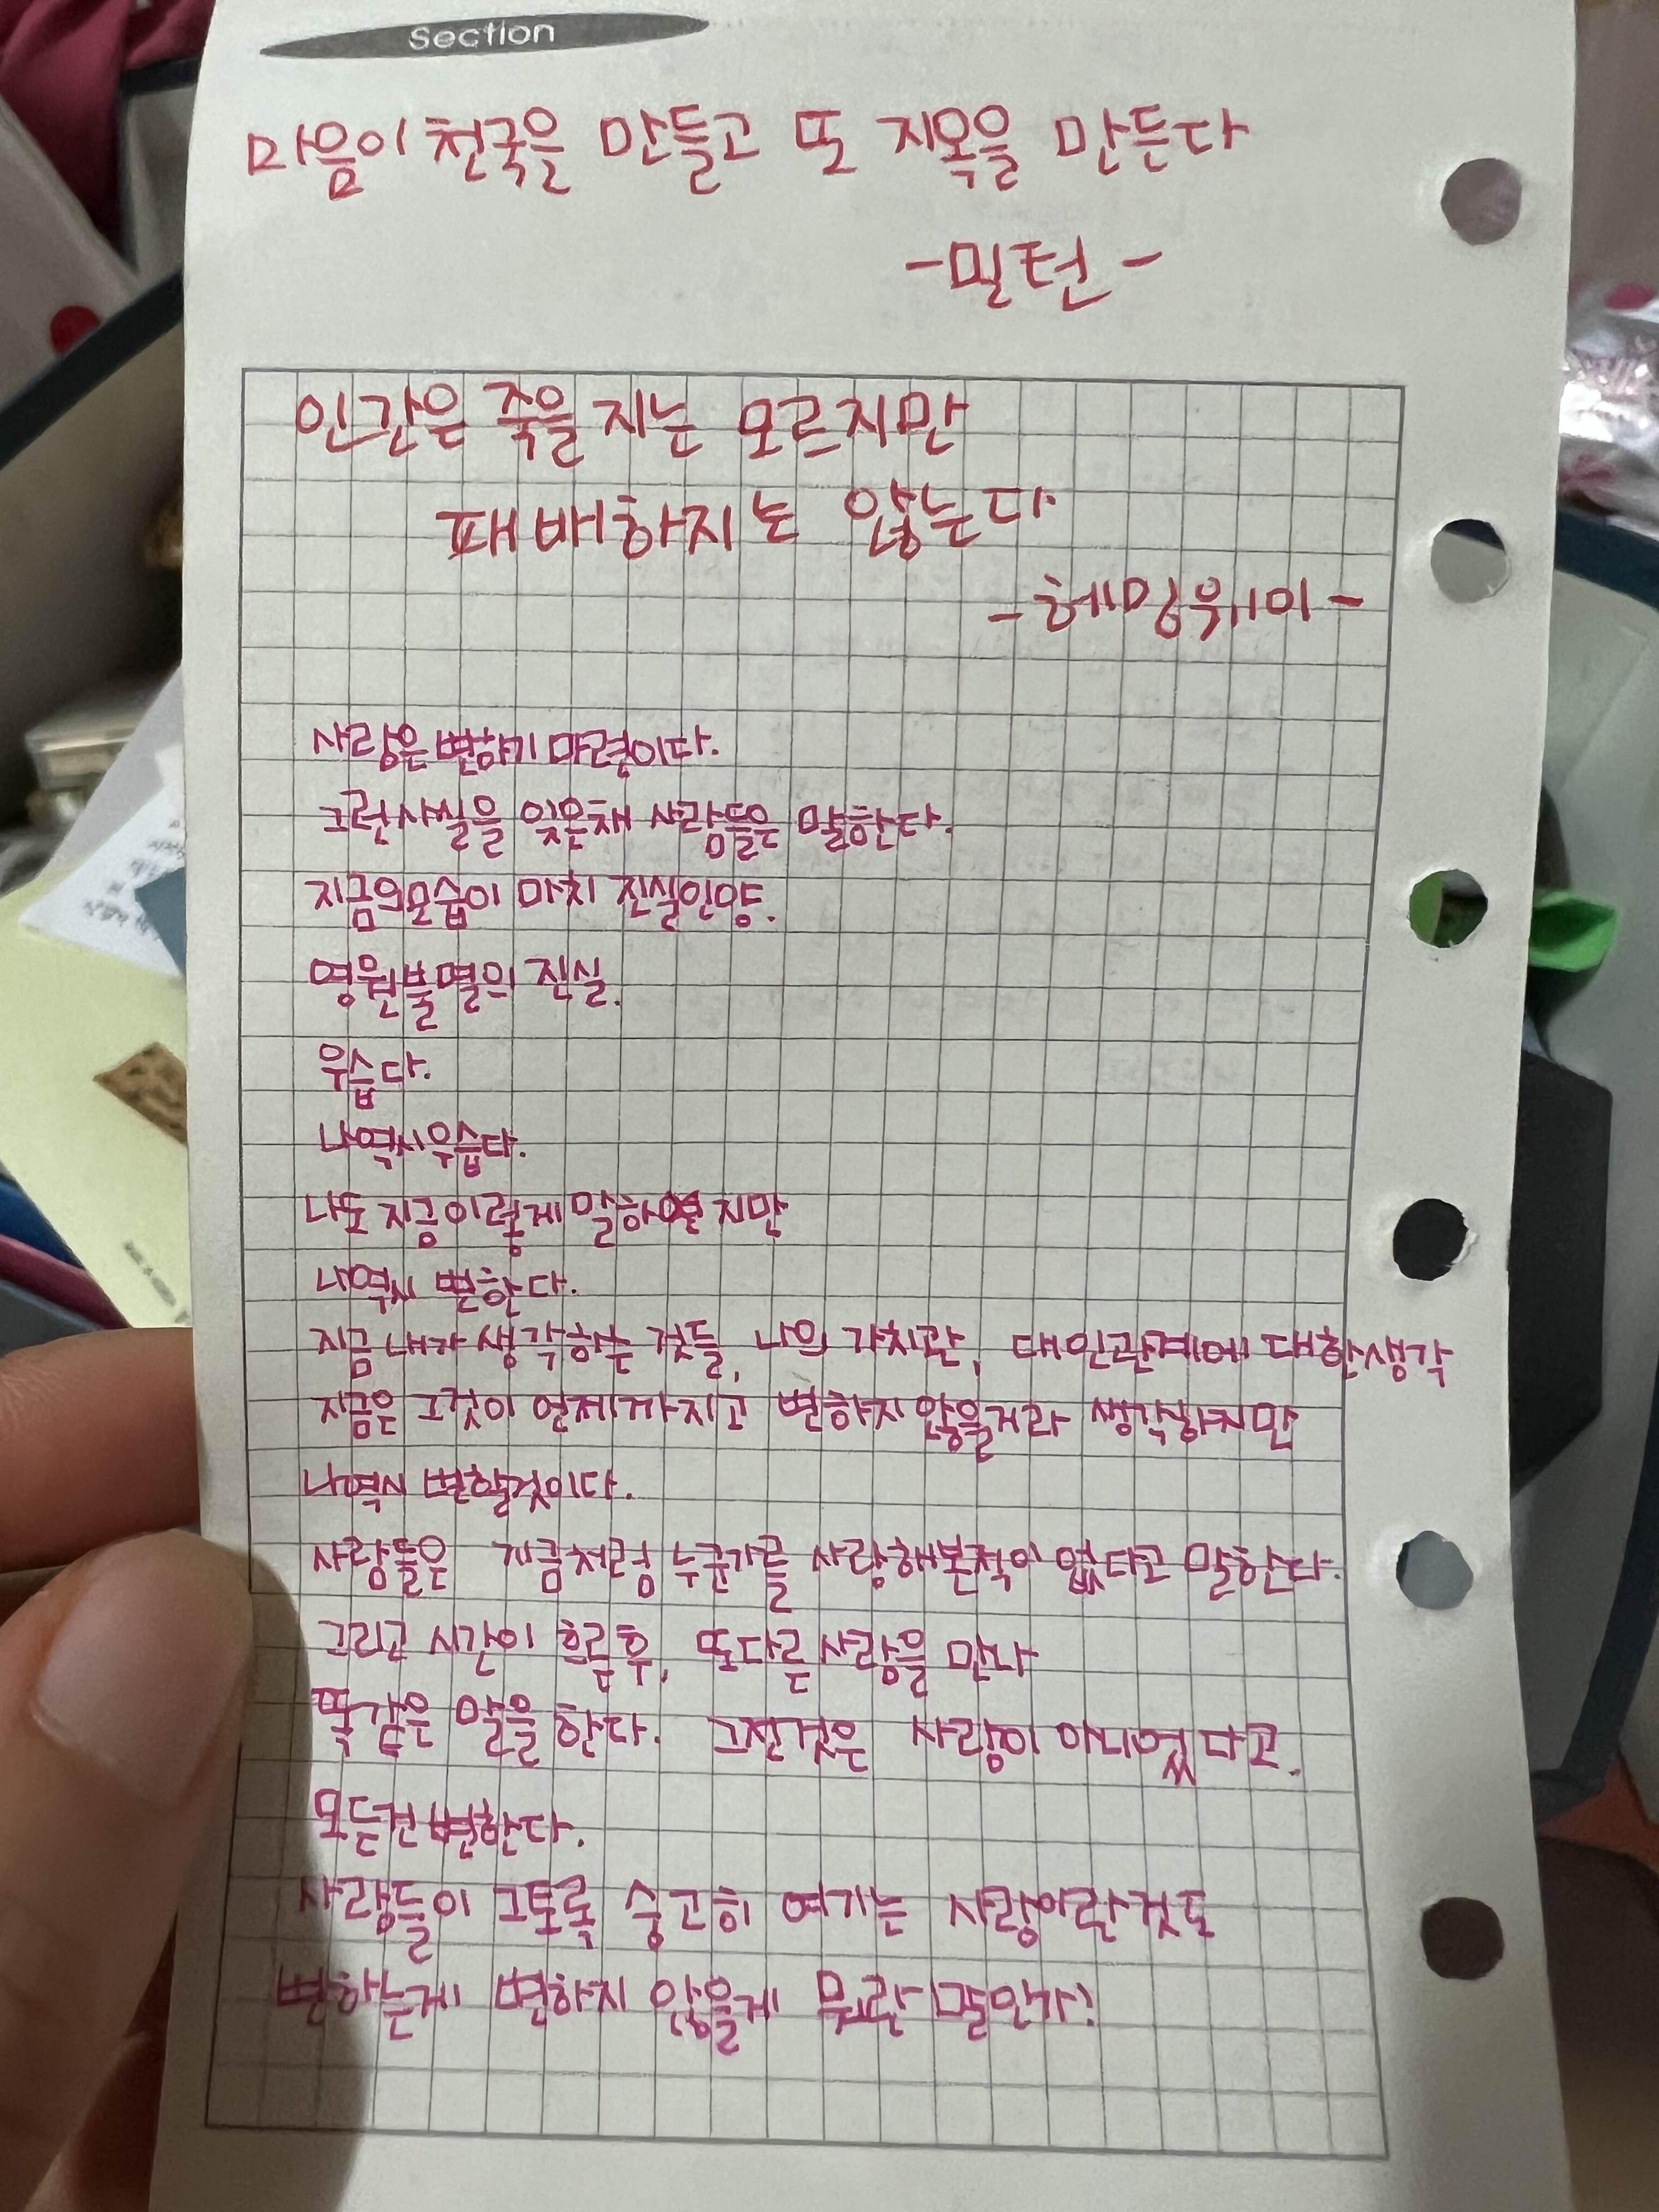 Section
마음이 천국을 만들고 또 지옥을 만든다
-밀턴-
인간은 죽을 지는 모르지만
패배하지는 않는다
-헤밍웨이-
사랑은 변하기 마련이다.
그런 사실을 잊은채 사람들은 말한다.
지금의 모습이 마치 진실인양.
영원불멸의 진실.
우습다.
나 역시 우습다.
나도 지금 이렇게 말하였지만
나 역시 변한다.
지금 내가 생각하는 것들, 나의 가치관, 대인관계에 대한 생각
지금은 그것이 언제까지고 변하지 않을거라 생각하지만
나 역시 변할것이다.
사람들은 지금처럼 누군가를 사랑해본적이 없다고 말한다.
그리고 시간이 흐른 후, 또다른 사람을 만나
똑같은 말을 한다. 그전것은 사랑이 아니었다고.
모든건 변한다.
사람들이 그토록 숭고히 여기는 사랑이란것도
변하는게 변하지 않을게 뭐란 말인가!